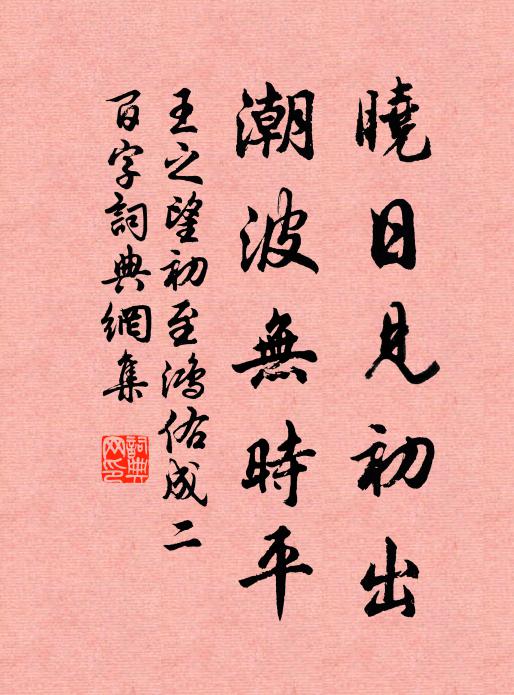 曉日見初出
潮波無時平
王之望初至鴻佑成二
百字詞典網集
詞典网印